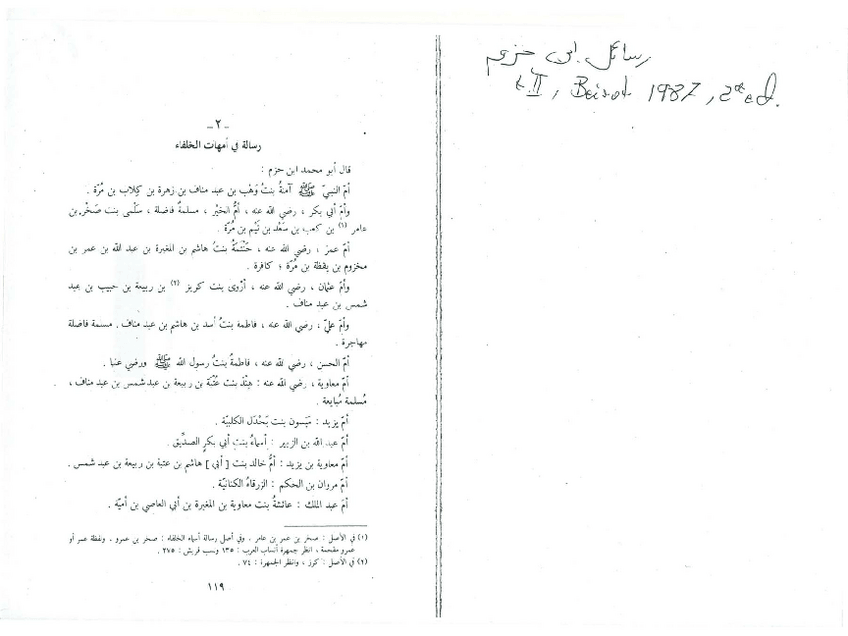 رسائل ابن حزم
t. II, Beirot 1987, 2ª ed.
ـ ٢ ـ
رسالة في أمهات الخلفاء
قال أبو محمد ابن حزم :
أمّ النبيّ ﷺ آمنةُ بنتُ وَهْب بن عبد مناف بن زهرة بن كِلاب بن مُرّة .
وأمّ أبي بكر ، رضي الله عنه ، أمُّ الخيْر ، مسلمةٌ فاضلة ، سَلْمى بنت صَخْر بن
عامر (١) بن كعب بن سَعْد بن تَيْم بن مُرّة .
أمّ عمرَ ، رضي الله عنه ، حَنْتَمَةُ بنتُ هاشم بن المغيرة بن عبد الله بن عمر بن
مخزوم بن يقظة بن مُرّة ؛ كافرة .
وأمّ عثمان ، رضي الله عنه ، أرْوى بنت كريز (٢) بن ربيعة بن حبيب بن عبد
شمس بن عبد مناف .
وأمّ عليّ ، رضي الله عنه ، فاطمة بنتُ أسد بن هاشم بن عبد مناف . مسلمة فاضلة
مهاجرة .
أمّ الحسن ، رضي الله عنه ، فاطمةُ بنتُ رسول الله ﷺ ورضي عنها .
أمّ معاوية ، رضي الله عنه : هِنْدُ بنت عُتْبَة بن ربيعة بن عبد شمس بن عبد مناف ،
مُسلمة مُبايعة .
أمّ يزيد : مَيْسون بنت بَحْدَل الكلبيّة .
أمّ عبد الله بن الزبير : أسماءُ بنت أبي بكرٍ الصدِّيق .
أمّ معاوية بن يزيد : أمُّ خالد بنت [ أبي ] هاشم بن عتبة بن ربيعة بن عبد شمس .
أمّ مروان بن الحكم : الزرقاءُ الكنانيّة .
أمّ عبد الملك : عائشةُ بنت معاوية بن المغيرة بن أبي العاصي بن أميّة .
(١) في الأصل : صخر بن عمر بن عامر . وفي أصل رسالة أسماء الخلفاء : صخر بن عمرو . ولفظة عمر أو
عمرو مقحمة ، انظر جمهرة أنساب العرب : ١٣٥ ونسب قريش : ٢٧٥ .
(٢) في الأصل : كرز ، وانظر الجمهرة : ٧٤ .
١١٩